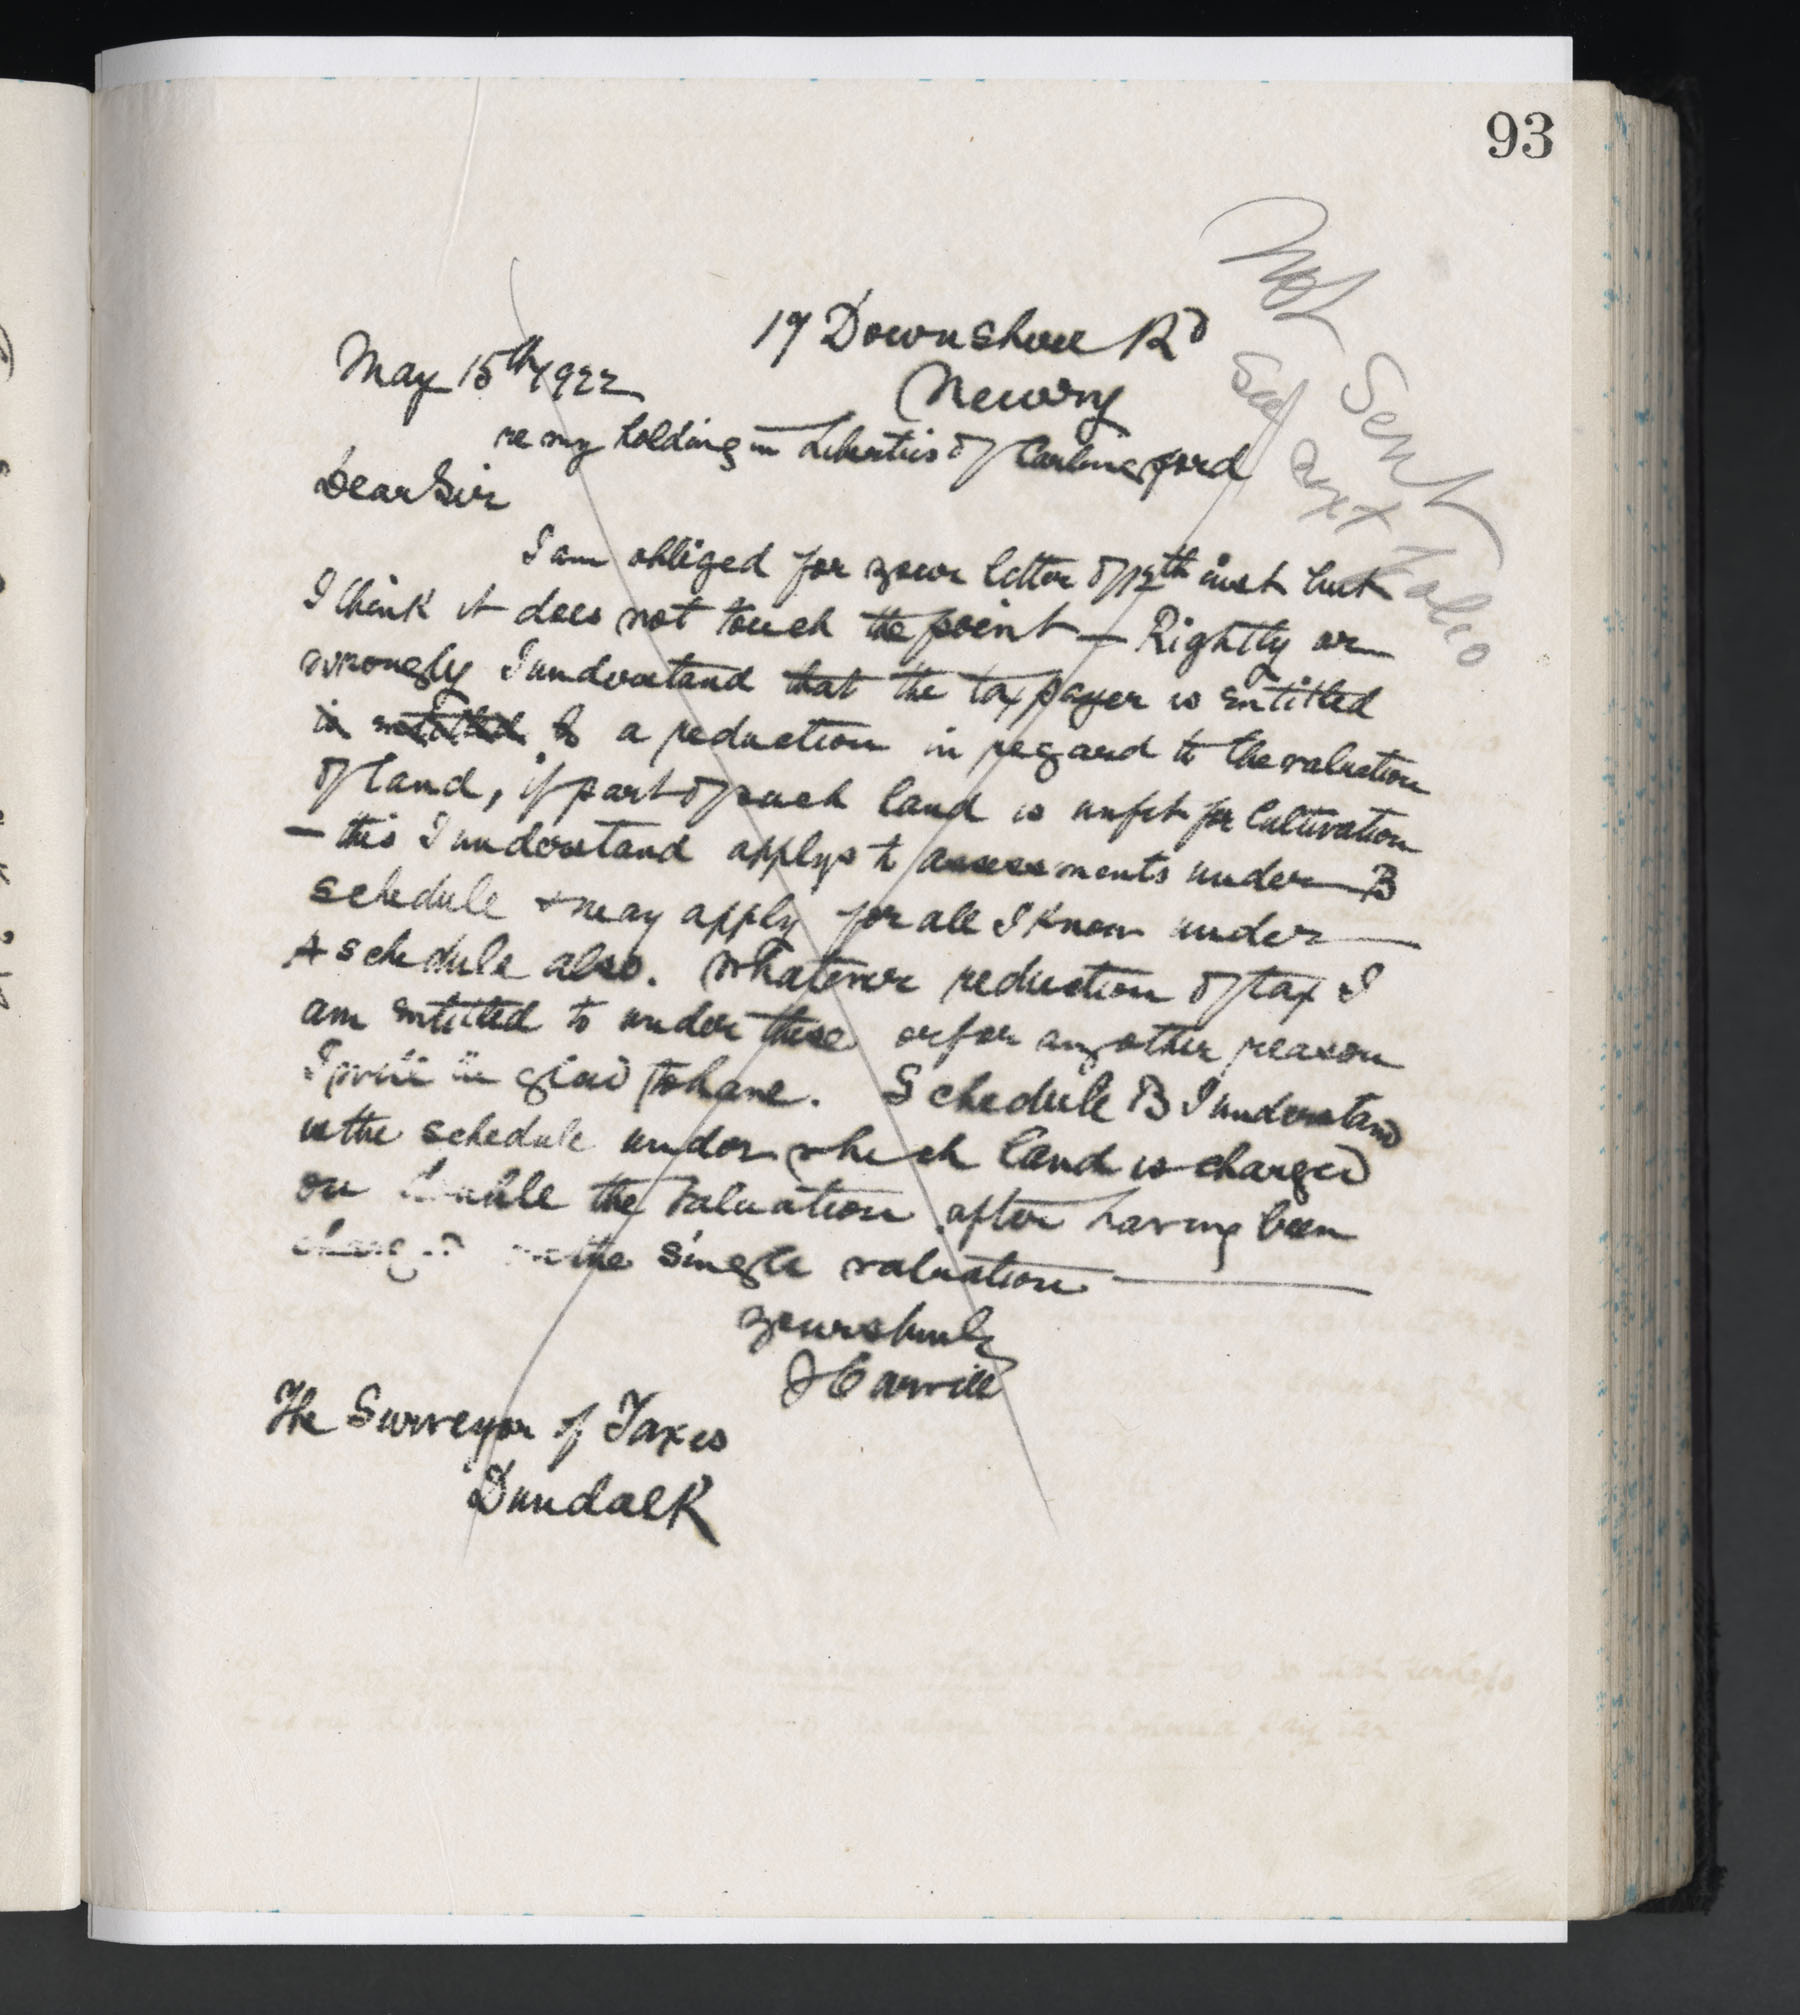 93
Not Sent
See next Folio
17 Downshire Rd
May 15th 1922
Newry
re my holding in Liberties of Carlingford
Dear Sir
I am obliged for your letter of 12th inst but
I think it does not touch the point – Rightly or
wrongly I understand that the tax payer is entitled
is entitled to a reduction in regard to the valuation
of land, if part of such land is unfit for Cultivation
– this I understand applys to assessments under B
schedule & may apply for all I know under
A schedule also. Whatever reduction of tax I
am entitled to under these or for any other reason
I will be glad to have. Schedule B I understand
is the schedule under which land is charged
on double the valuation after having been
charged on the single valuation
Yours truly
J Carvill
The Surveyor of Taxes
Dundalk